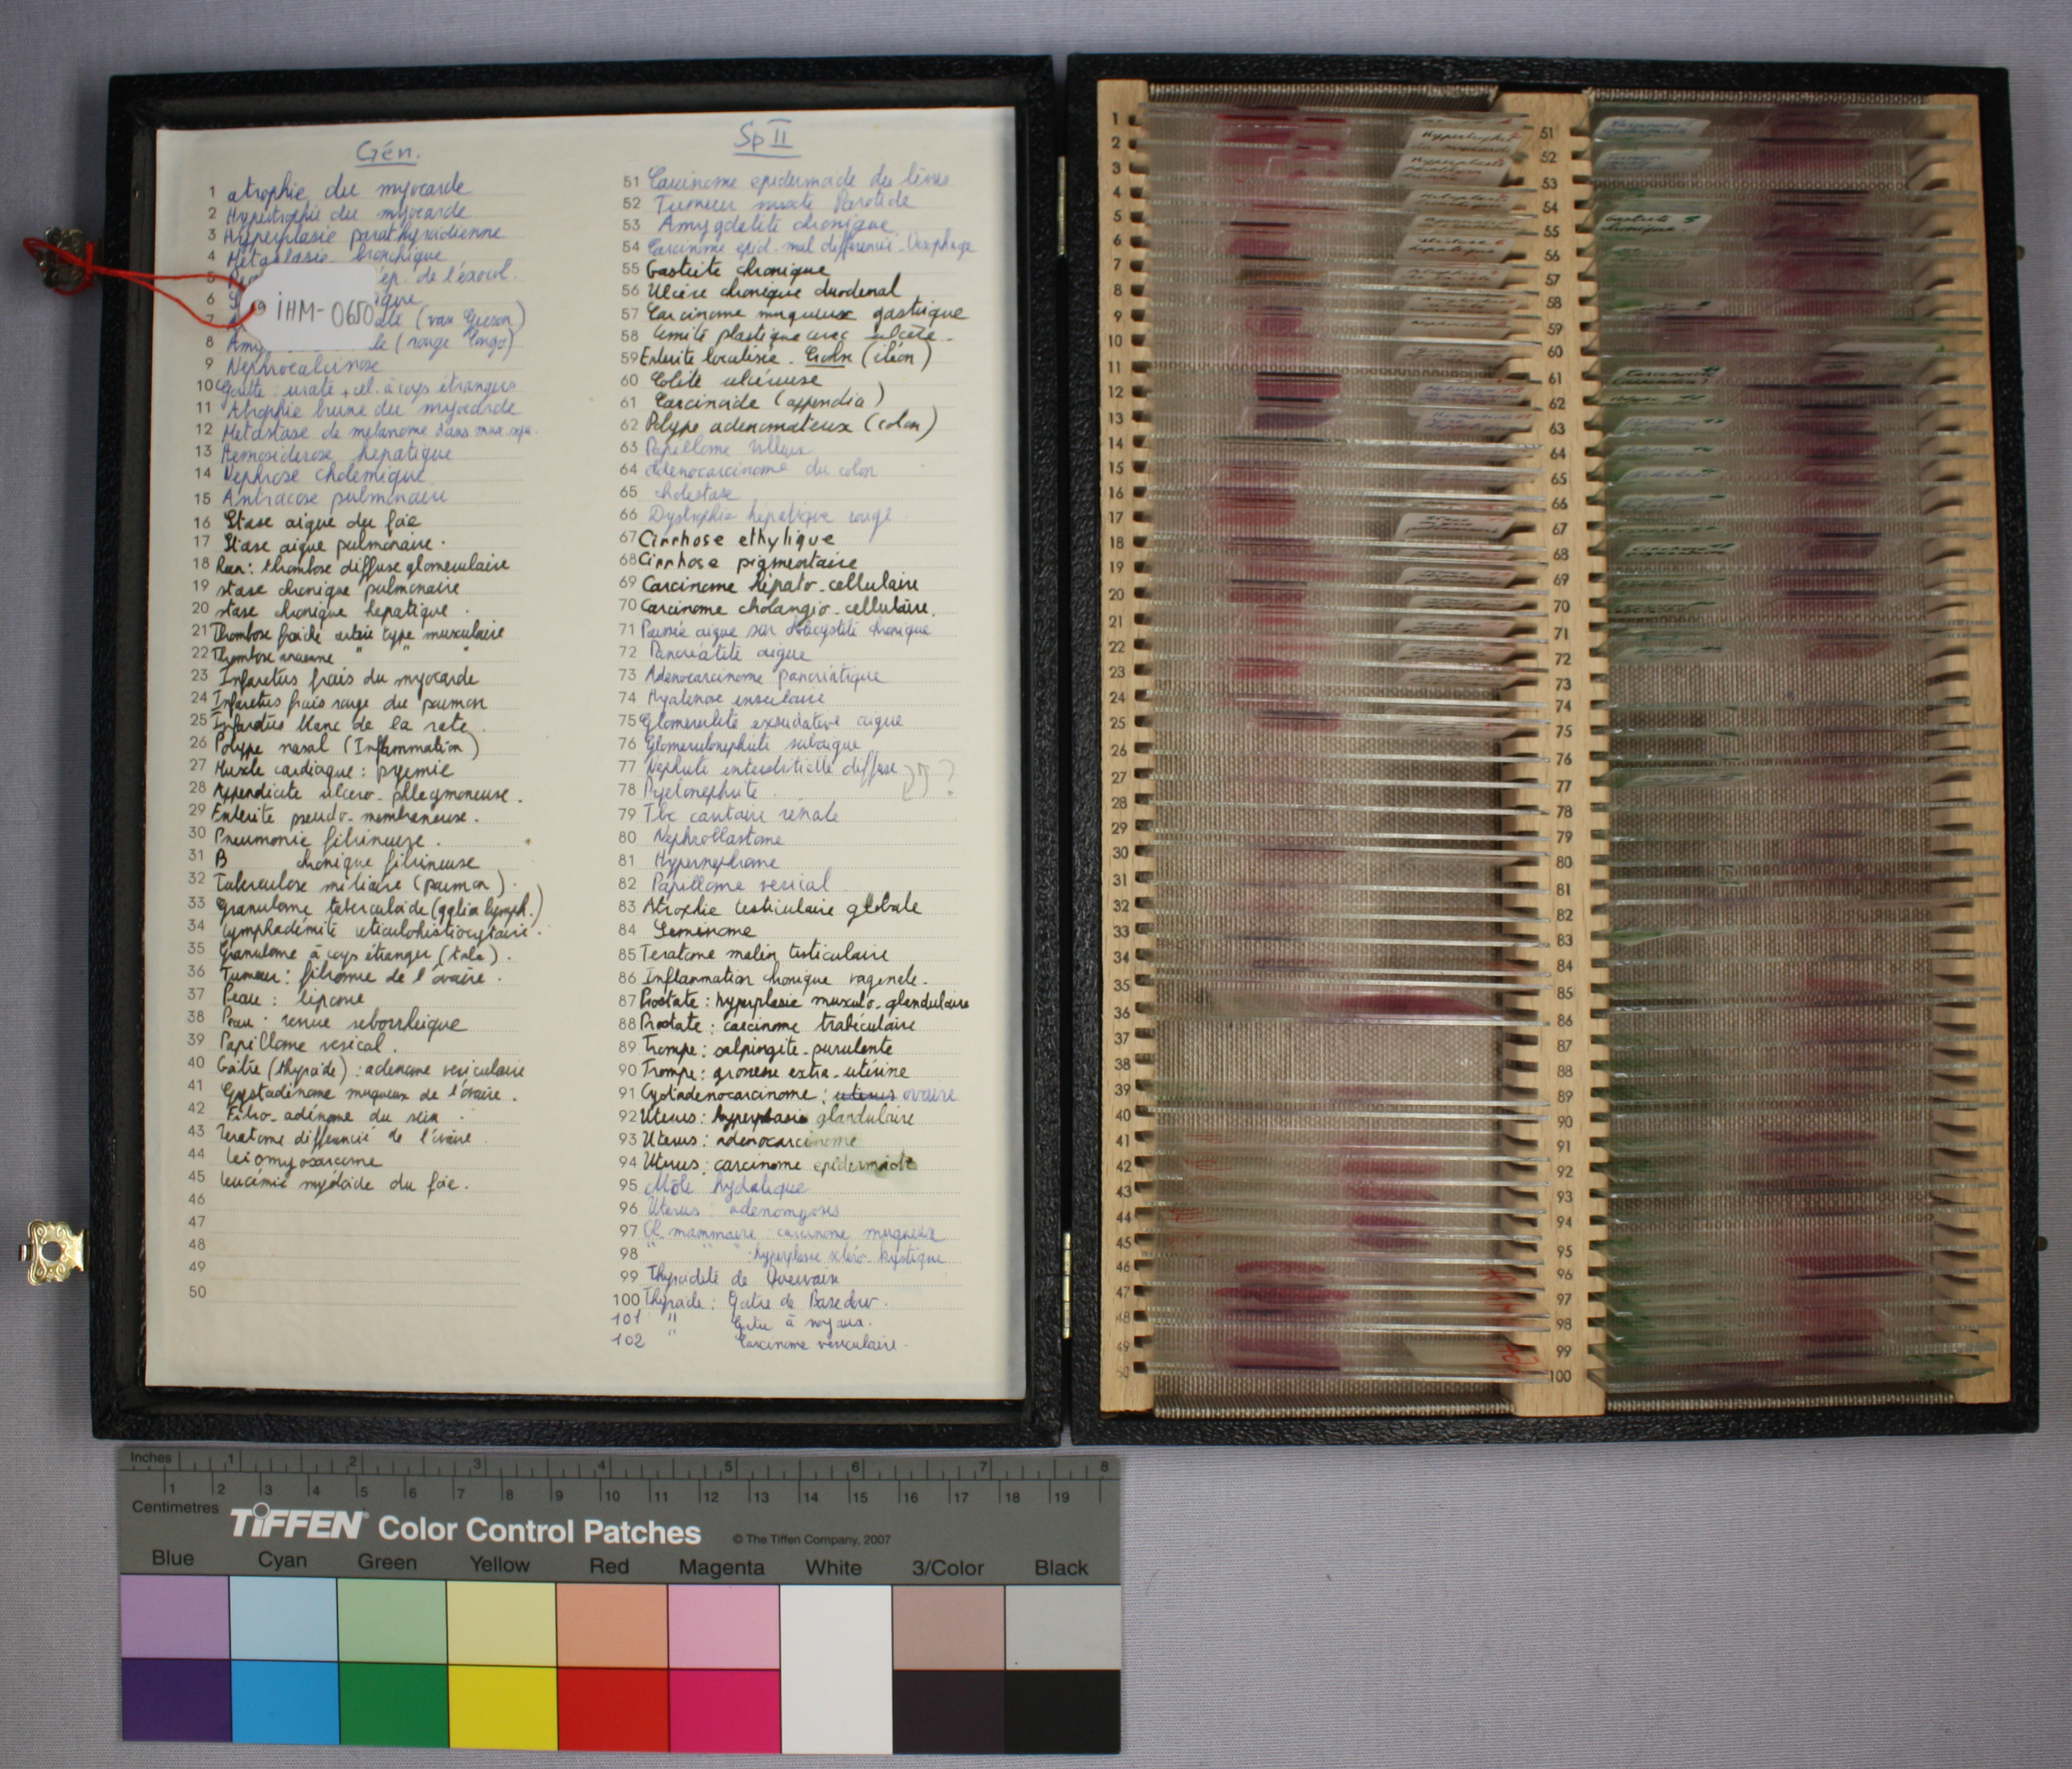 Gén.
1 atrophie du myocarde
2 Hypertrophie du myocarde
3 Hyperplasie parathyroidienne
4 Métaplasie bronchique
5 ép. de l'exocol.
6 ique
7 ale (van Gieson)
8 Amy le (rouge Congo)
9 Nephrocalcinose
10 Goutte : urate + cel. à corps étrangers
11 Atrophie brune du myocarde
12 Métastase de mélanome dans
13 Hemosiderose hepatique
14 Nephrose cholemique
15 Antracose pulmonaire
16 Stase aigue du foie
17 Stase aigue pulmonaire.
18 Rein: thrombose diffuse glomerulaire
19 stase chronique pulmonaire
20 stase chronique hepatique.
21 Thrombose fraiche artère type musculaire
22 Thrombose ancienne " " "
23 Infarctus frais du myocarde
24 Infarctus frais rouge du poumon
25 Infarctus blanc de la rate.
26 Polype nasal (Inflammation)
27 Muscle cardiaque : pyemie
28 Appendicite ulcero-phlegmoneuse.
29 Enterite pseudo-membraneuse.
30 Pneumonie fibrineuse.
31 B chronique fibrineuse
32 Tuberculose miliaire (poumon).
33 Granulome tuberculoide (gglion lymph.)
34 lymphadémité reticulohistiocytaire.
35 Granulome à corps étranger (talc).
36 Tumeur: fibrome de l'ovaire.
37 Peau : lipome
38 Peau : verrue seborrheique
39 Papillome vesical.
40 Goitre (thyroide) : adenome vesiculaire
41 Cystadénome muqueux de l'ovaire.
42 Fibro-adénome du sein.
43 Teratome differencié de l'ovaire.
44 leiomyosarcome
45 leucémie myéloide du foie.
46
47
48
49
50
Sp II
51 Carcinome epidermoide des lèvres
52 Tumeur mixte Parotide
53 Amygdalite chronique
54 Carcinome epid. mal differencié. Oesophage
55 Gastrite chronique
56 Ulcère chronique duodenal
57 Carcinome muqueux gastrique
58 linite plastique avec ulcère.
59 Enterite localisée. Crohn (iléon)
60 Colite ulcéreuse
61 Carcinoide (appendix)
62 Polype adenomateux (colon)
63 Papillome villeux
64 Adenocarcinome du colon
65 cholestase
66 Dystrophie hépatique rouge
67 Cirrhose ethylique
68 Cirrhose pigmentaire
69 Carcinome hépato-cellulaire
70 Carcinome cholangio-cellulaire.
71 Poussée aigue sur cholécystite chronique
72 Pancréatite aigue
73 Adenocarcinome pancréatique
74 Hyalinose insulaire
75 Glomerulite exsudative aigue
76 Glomerulonephrite subaigue
77 Nephrite interstitielle diffuse ?
78 Pyelonephrite.
79 Tbc cavitaire rénale
80 Nephroblastome
81 Hypernephrome
82 Papillome vesical
83 Atrophie testiculaire globale
84 Seminome
85 Teratome malin testiculaire
86 Inflammation chronique vaginale.
87 Prostate : hyperplasie musculo-glandulaire
88 Prostate : carcinome trabiculaire
89 Trompe : salpingite-purulente
90 Trompe : grossesse extra-utérine
91 Cystadenocarcinome : uterus ovaire
92 Uterus : hyperplasie glandulaire
93 Uterus : adenocarcinome
94 Uterus : carcinome epidermoide
95 Môle hydatique
96 Uterus : adenomyosis
97 Gl. mammaire : carcinome muqueux
98 " " " hyperplasie scléro-kystique
99 Thyroidite de Quervain
100 Thyroide : Goitre de Basedow.
101 " Goitre à noyaux.
102 " Carcinome vesiculaire.
iHM-0650
1
2
3
4
5
6
7
8
9
10
11
12
13
14
15
16
17
18
19
20
21
22
23
24
25
26
27
28
29
30
31
32
33
34
35
36
37
38
39
40
41
42
43
44
45
46
47
48
49
50
51
52
53
54
55
56
57
58
59
60
61
62
63
64
65
66
67
68
69
70
71
72
73
74
75
76
77
78
79
80
81
82
83
84
85
86
87
88
89
90
91
92
93
94
95
96
97
98
99
100
Inches 1 2 3 4 5 6 7 8
1 2 3 4 5 6 7 8 9 10 11 12 13 14 15 16 17 18 19
Centimetres
TiFFEN Color Control Patches © The Tiffen Company, 2007
Blue Cyan Green Yellow Red Magenta White 3/Color Black